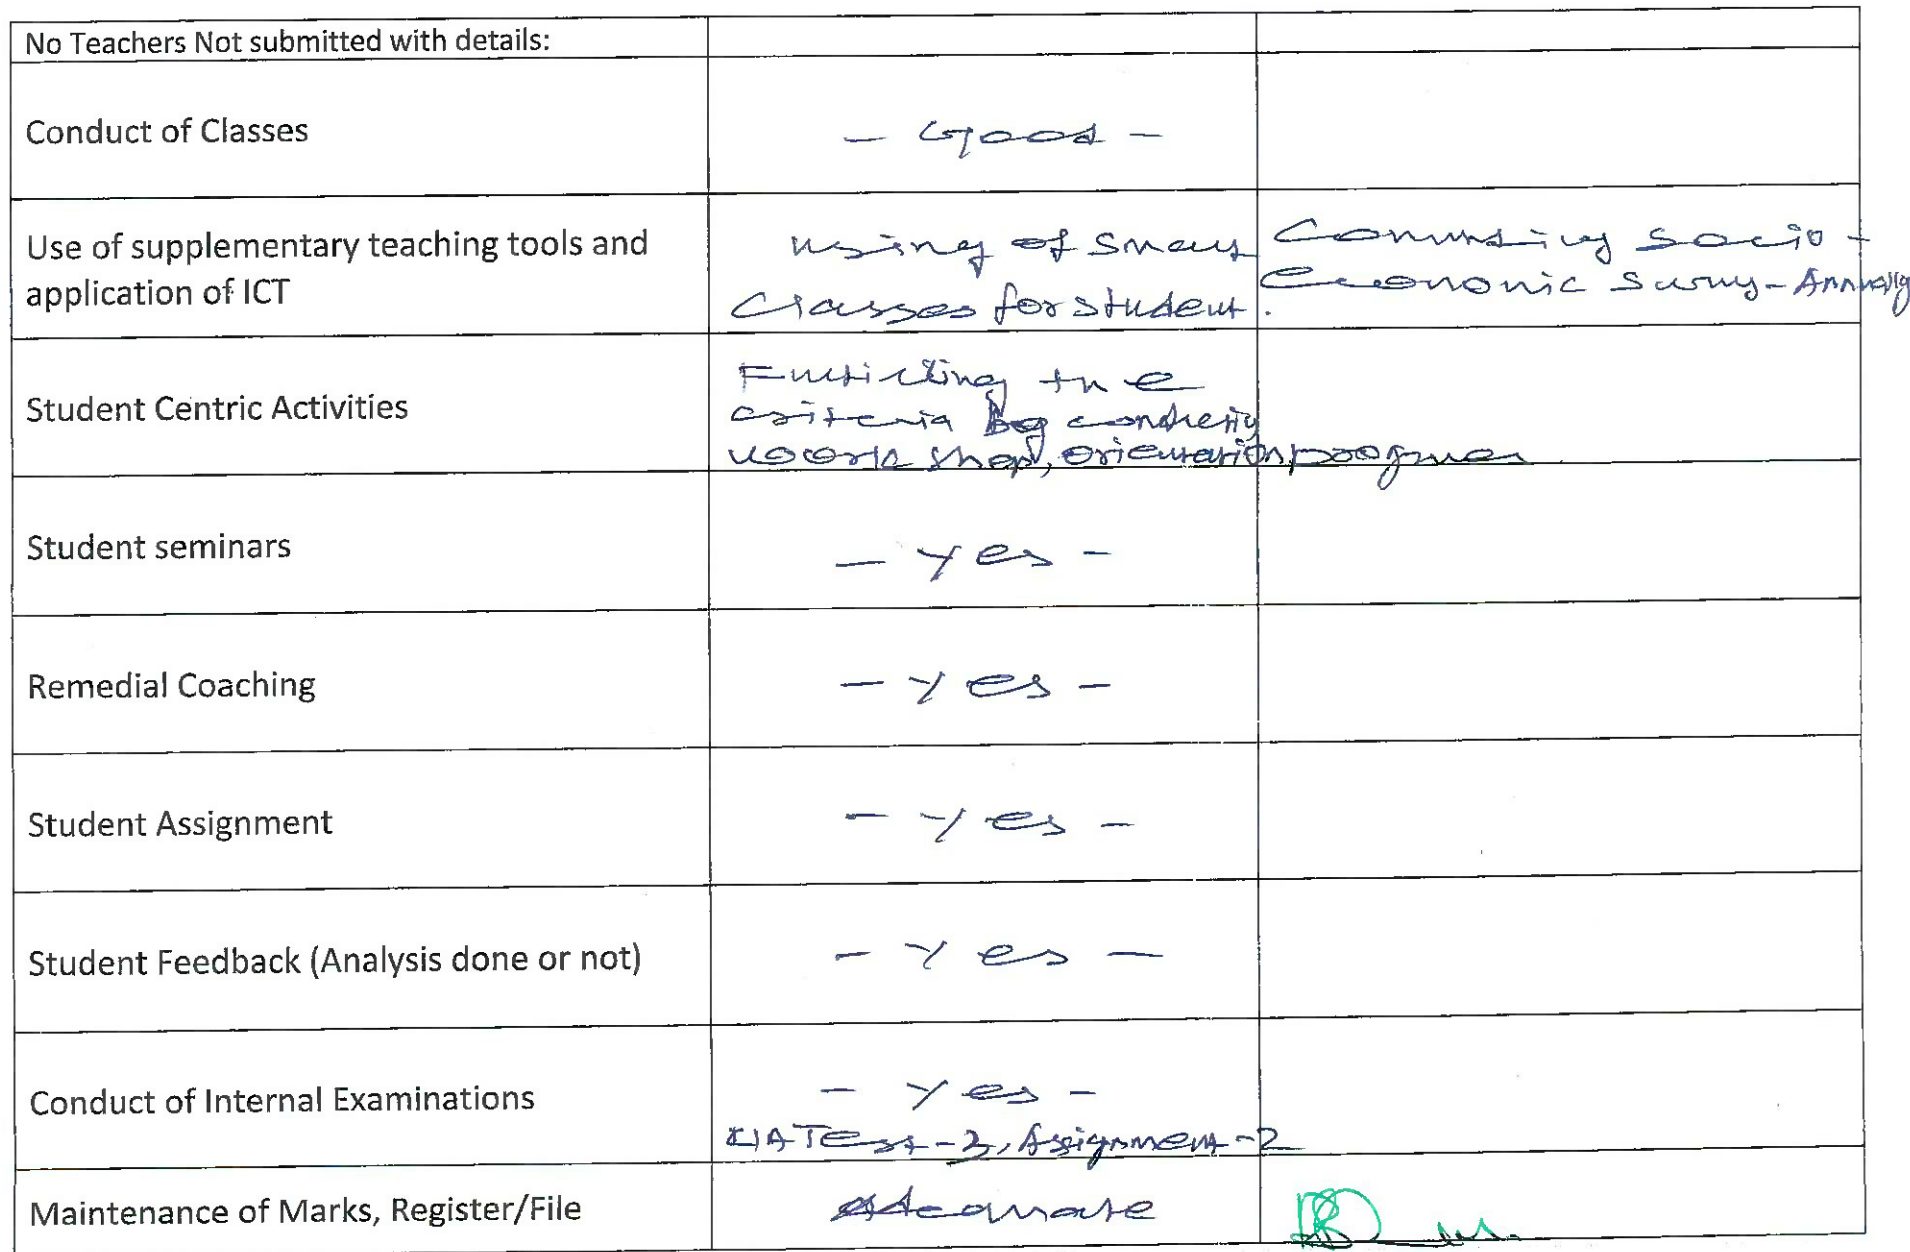 No Teachers Not submitted with details:
Conduct of Classes
- Good -
Use of supplementary teaching tools and
application of ICT
using of Smart
Classes for student.
Socio -
Economic Survey - Annually
Student Centric Activities
the
criteria by conducting
work shop, orientation programes
Student seminars
- yes -
Remedial Coaching
- yes -
Student Assignment
- yes -
Student Feedback (Analysis done or not)
- yes -
Conduct of Internal Examinations
- yes -
Test - 3, Assignment - 2
Maintenance of Marks, Register/File
Adequate